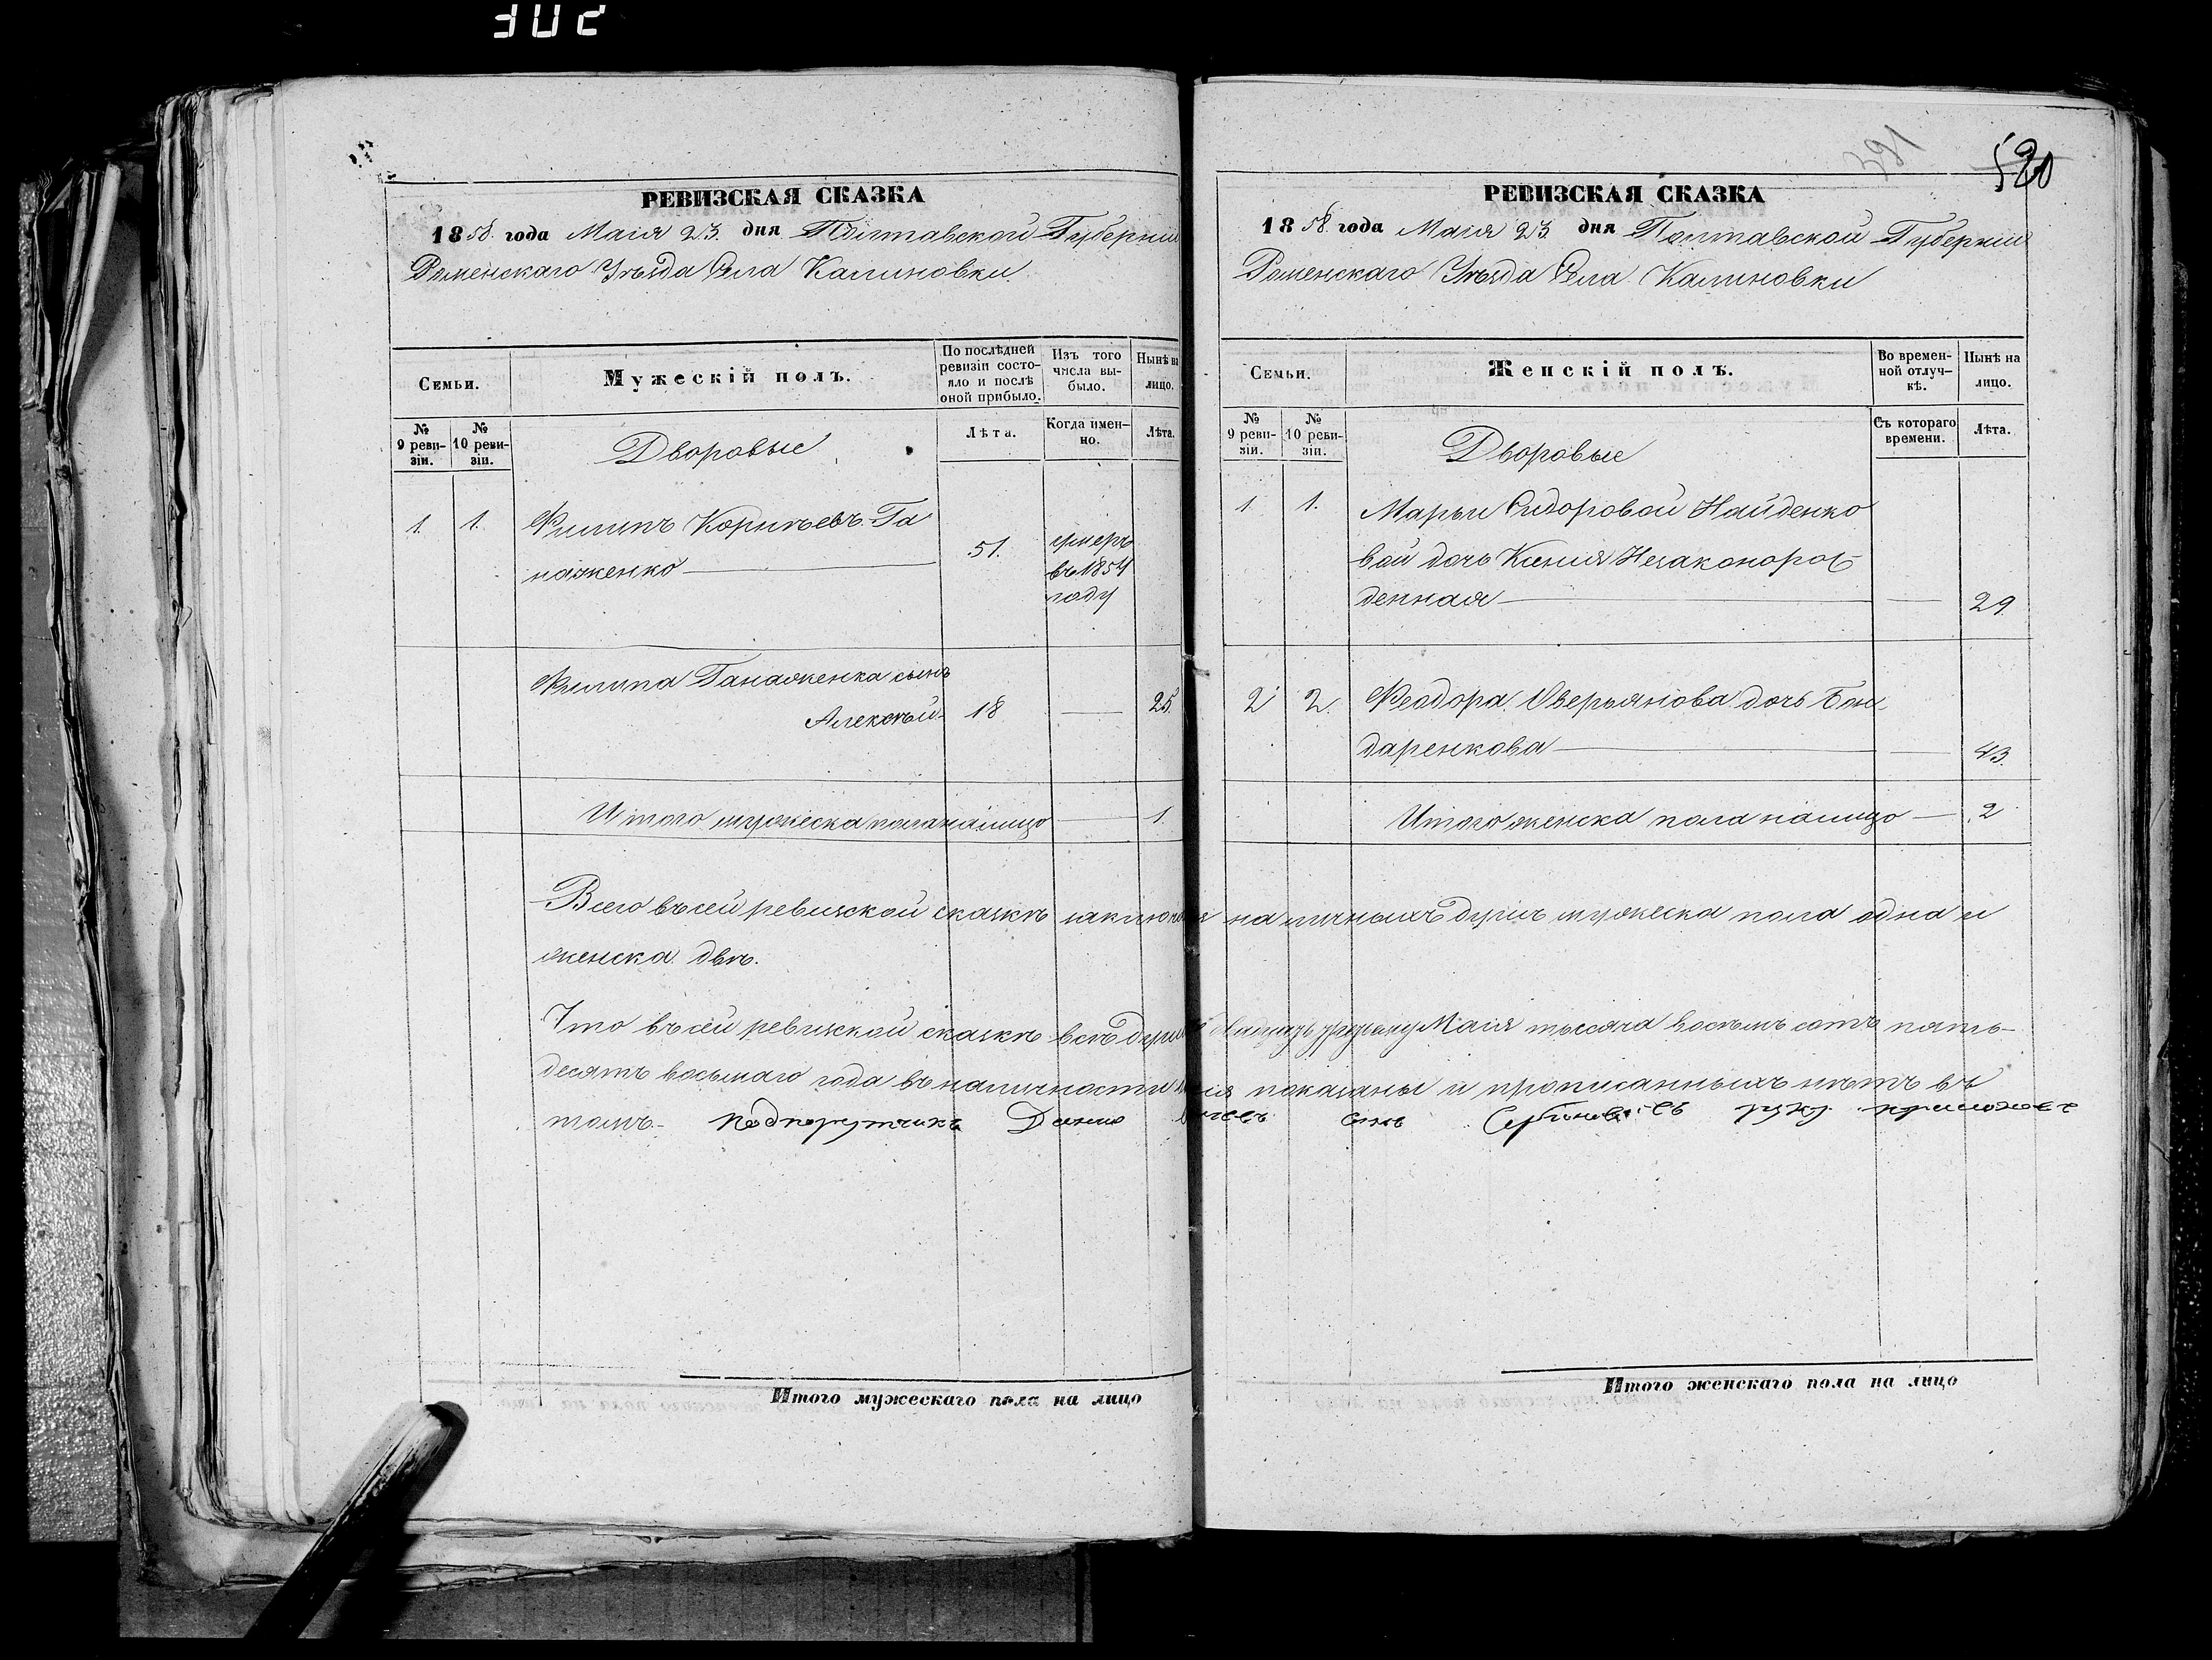 302
391
520
РЕВИЗСКАЯ СКАЗКА
1858. года Маія 23. дня Полтавской Губерніи
Роменскаго Уѣзда Села Калиновки.
Семьи.
Мужескій полъ.
По послѣдней ревизіи состояло и послѣ оной прибыло.
Изъ того числа выбыло.
Нынѣ на лицо.
№ 9 ревизіи.
№ 10 ревизіи.
Дворовые
Лѣта.
Когда именно.
Лѣта.
1. 1. Филипъ Корнѣевъ Га
наженко 51. умеръ
въ 1854
году
Филипа Ганаженка сынъ
Алексѣй 18 25.
Итого мужеска пола налицо 1.
РЕВИЗСКАЯ СКАЗКА
1858. года Маія 23. дня Полтавской Губерніи
Роменскаго Уѣзда Села Калиновки
Семьи.
Женскій полъ.
Во временной отлучкѣ.
Нынѣ на лицо.
№ 9 ревизіи.
№ 10 ревизіи.
Дворовые
Съ котораго времени.
Лѣта.
1 1. Марьи Сидоровой Найденко
вой дочь Ксенія Незаконорож
денная 29
2 2. Феодора Оверьянова дочь Бон
даренкова 43.
Итого женска пола налицо 2
Всего въ сей ревизской сказкѣ наличныхъ душъ мужеска пола одна и
женска двѣ.
Что въ сей ревизской сказкѣ всѣ души Маія тысяча восемъ сотъ пять-
десятъ восьмаго года въ наличности показаны и прописанныхъ нѣтъ въ
томъ- подпорутчикъ сынъ руку приложилъ
Итого мужескаго пола на лицо
Итого женскаго пола на лицо